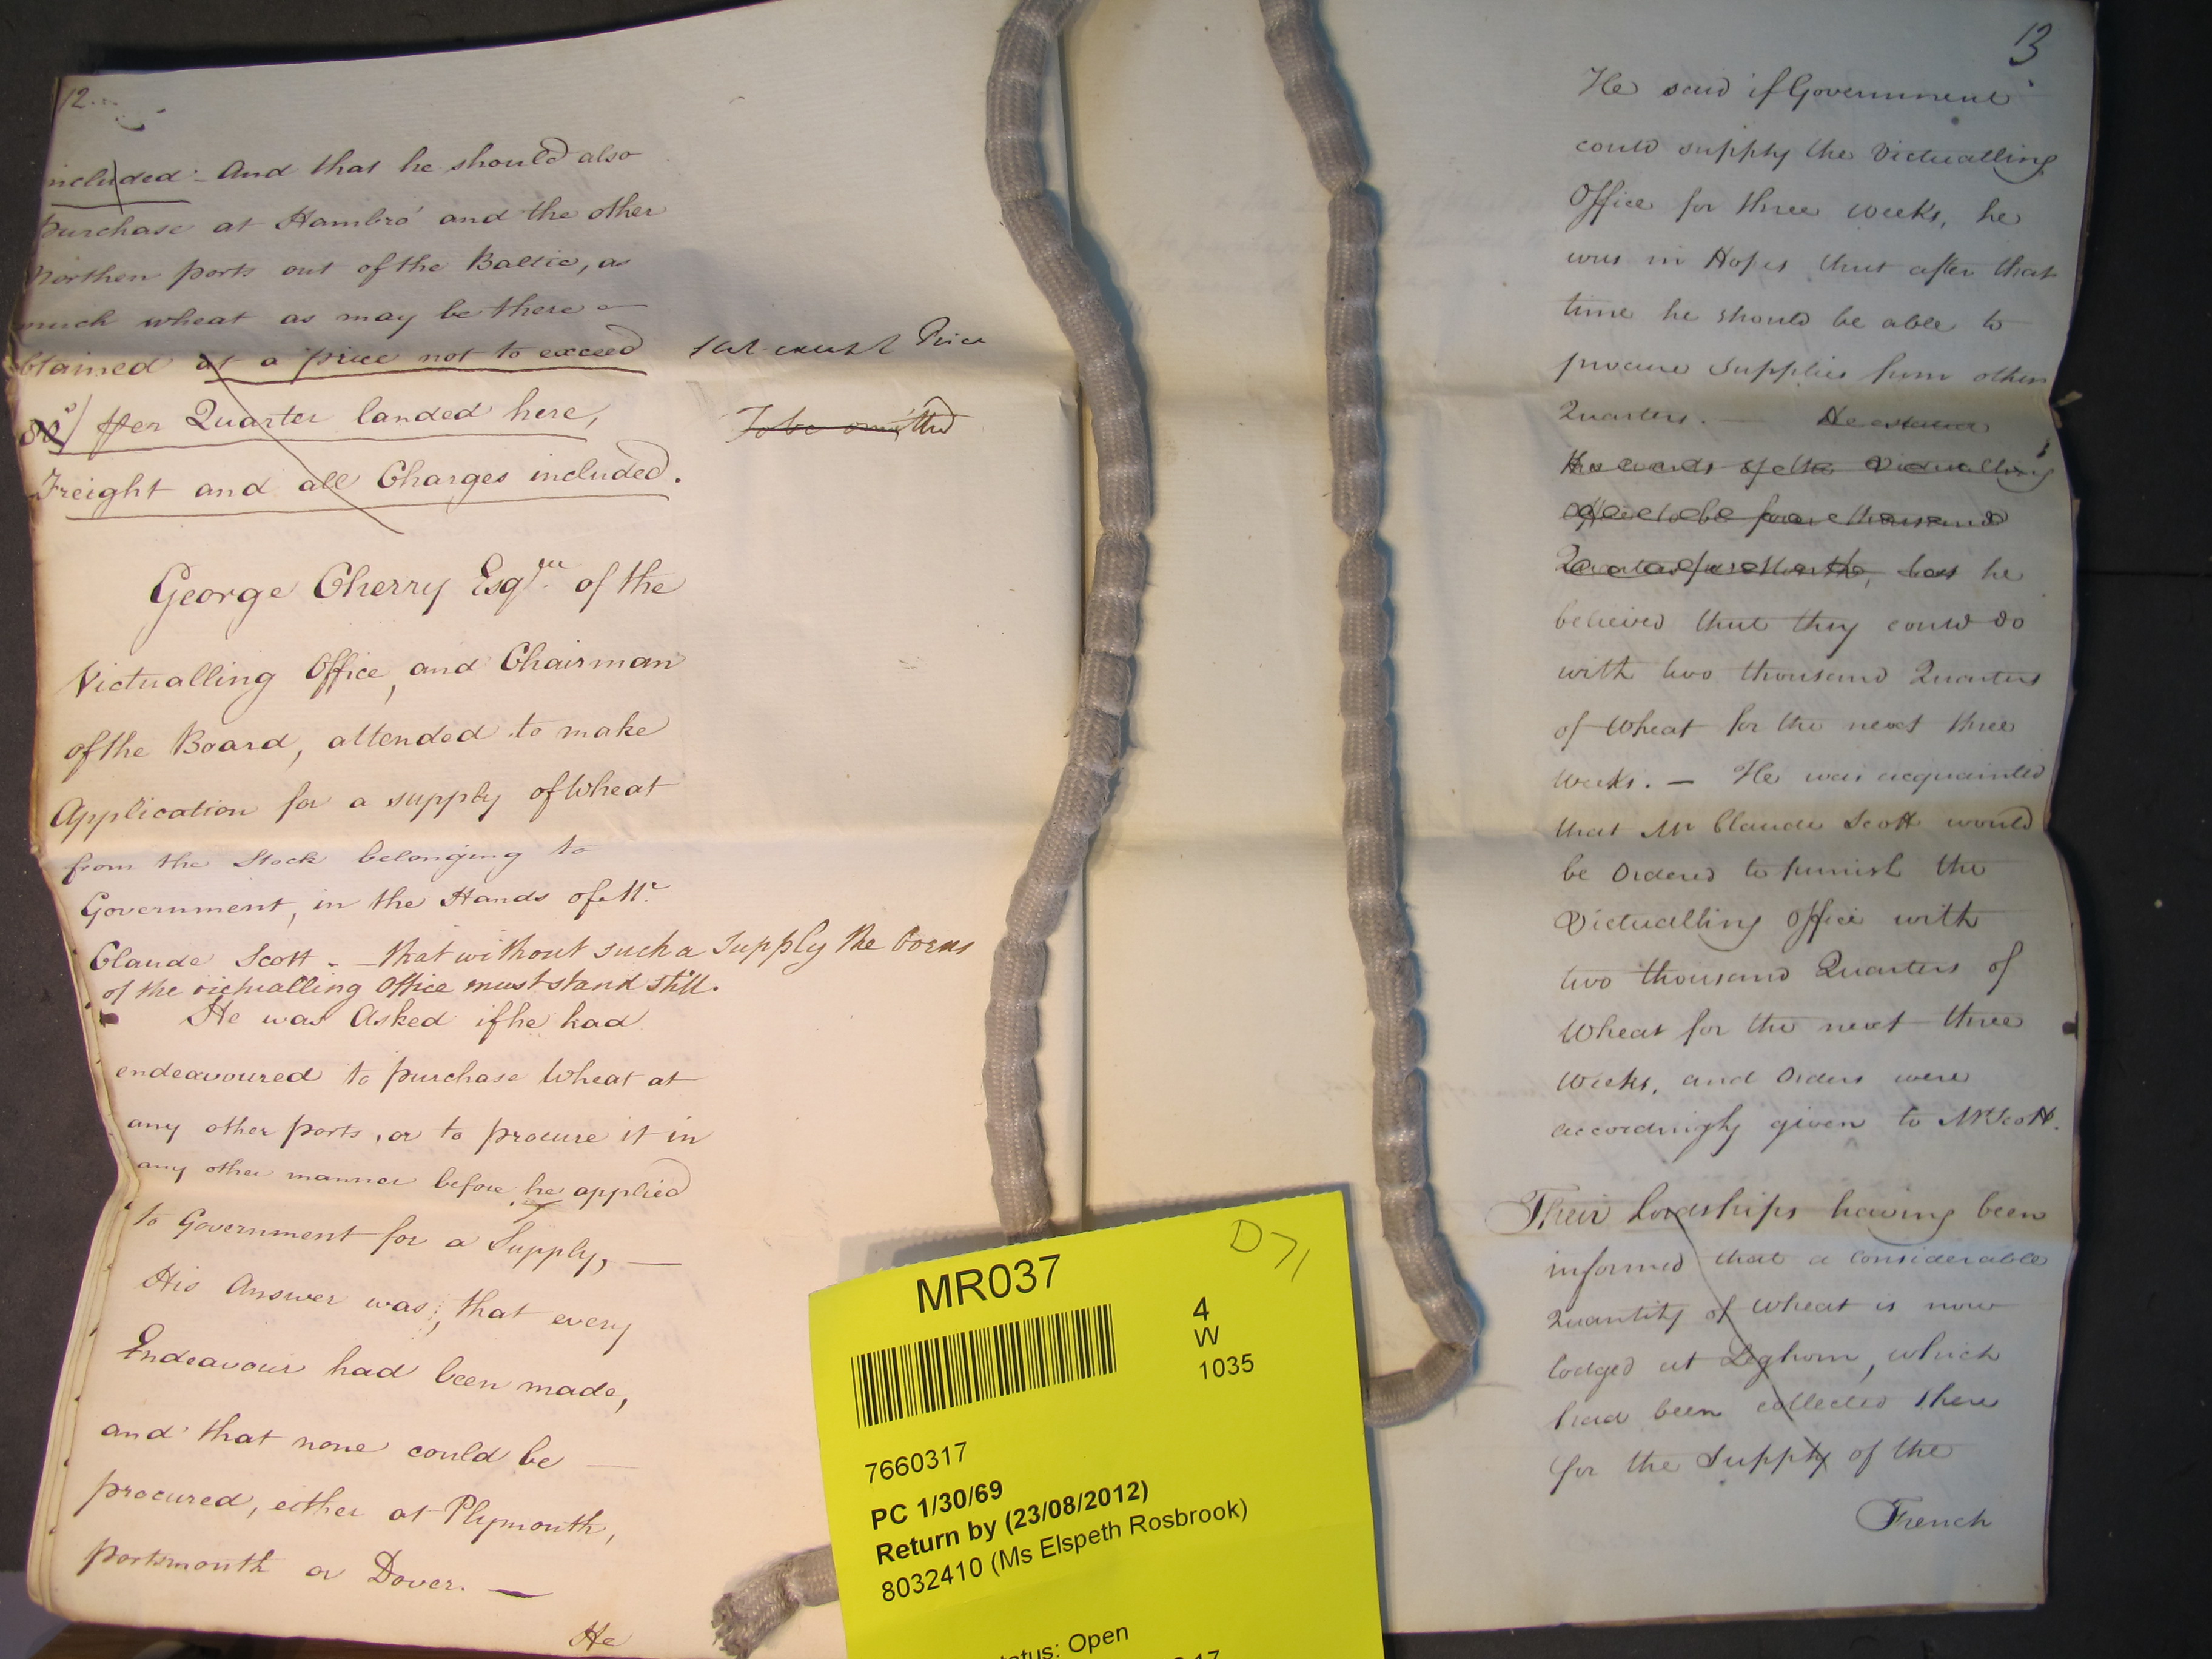 12.
included - And that he should also
purchase at Hambro' and the other
Northen ports out of the Baltic, as
much wheat as may be there o-
btained at a price not to exceed
80s/ per Quarter landed here,
Freight and all Charges included.
Price
To be omitted
George Cherry Esqre. of the
Victualling Office, and Chairman
of the Board, attended to make
Application for a supply of Wheat
from the Stock belonging to
Government, in the Hands of Mr.
Claude Scott. - that without such a Supply the
of the victualling Office must stand still.
He was Asked if he had
endeavoured to purchase Wheat at
any other ports, or to procure it in
any other manner before he applied
to Government for a Supply, —
His Answer was; that every
Endeavour had been made,
and that none could be —
procured, either at Plymouth,
portsmouth or Dover. —
He
13
He said if Government
could supply the Victualling
Office for three weeks, he
was in Hopes that after that
time he should be able to
procure Supplies from other
Quarters. — He stated
the wants of the Victualling
Office to be four thousand
Quarters, but he
believed that they could do
with two thousand Quarters
of Wheat for the next three
weeks. — He was acquainted
that Mr Claude Scott would
be Ordered to furnish the
Victualling Office with
two thousand Quarters of
Wheat for the next three
Weeks, and Orders were
accordingly given to Mr Scott.
Their Lordships having been
informed that a considerable
Quantity of Wheat is now
lodged at Leghorn, which
had been collected there
for the Supply of the
French
D71
MR037
4
W
1035
7660317
PC 1/30/69
Return by (23/08/2012)
8032410 (Ms Elspeth Rosbrook)
tatus: Open